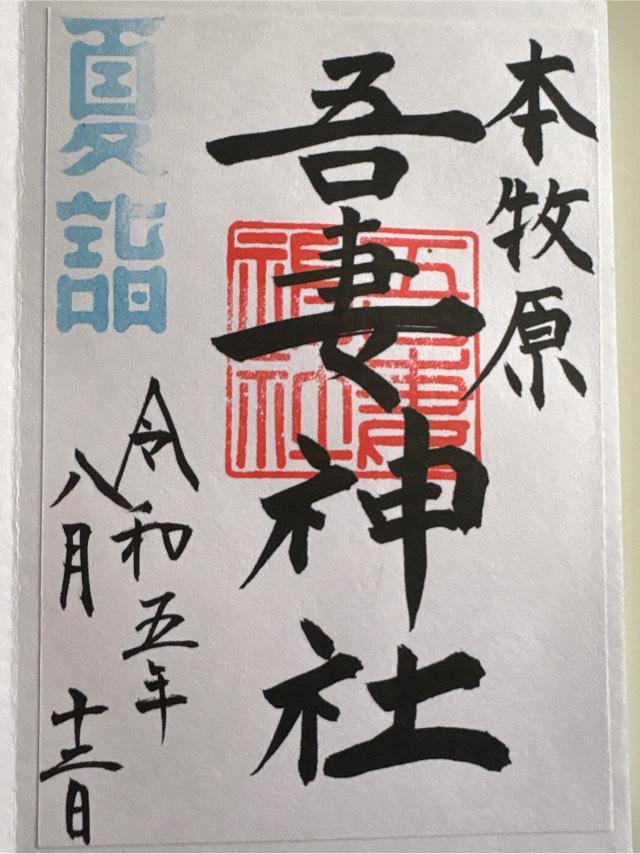 本牧原
吾妻神社
吾妻
神社
夏詣
令和五年
八月十三日